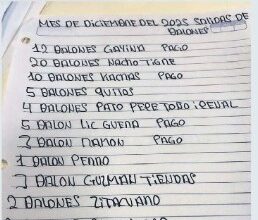 MES DE DICIEMBRE DEL 2025 SALIDAS DE
BALONES
12 BALONES GAVINA PAGO
20 BALONES NACHO TIGRE
10 BALONES KACHAS PAGO
5 BALONES QUITOS
4 BALONES PATO PEPE TODO
5 BALON LIC GUERA PAGO
3 BALON RAMON PAGO
1 BALON PERRO
3 BALON GUZMAN TIENDAS
2 BALONES ZITACUARO